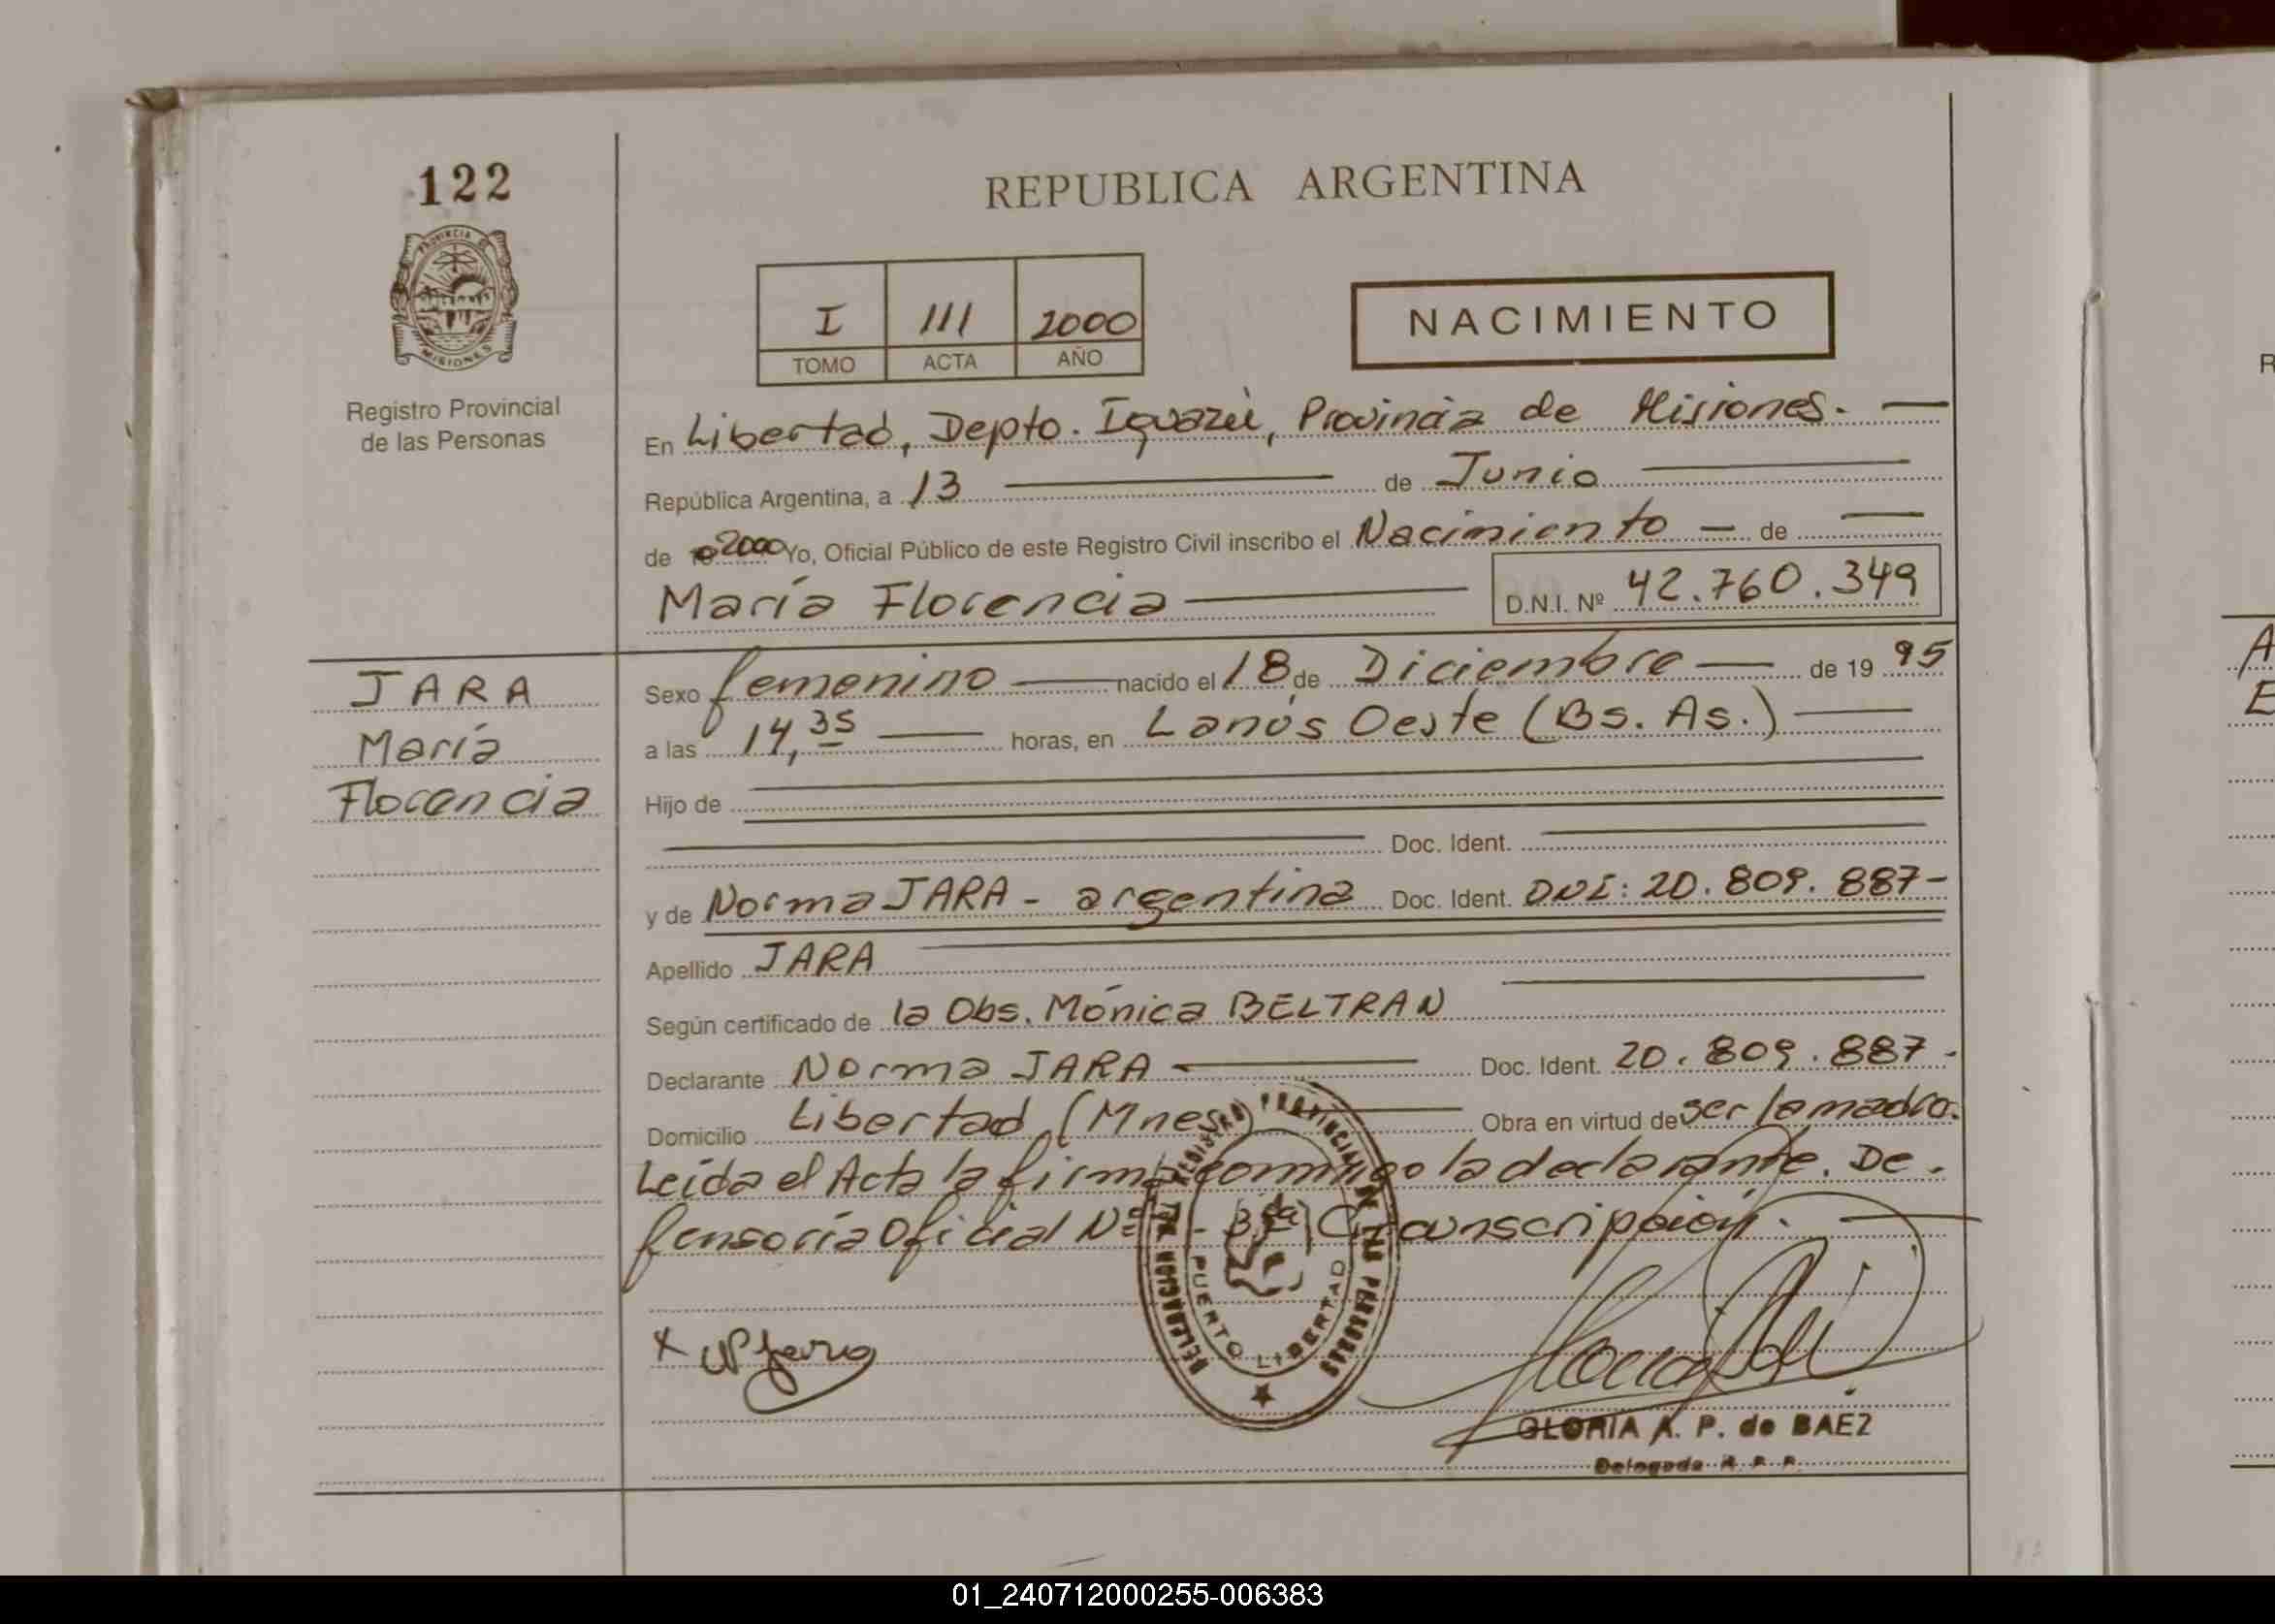 122
REPUBLICA ARGENTINA
PROVINCIA DE
MISIONES
I 111 2000
TOMO ACTA AÑO
NACIMIENTO
Registro Provincial
de las Personas
En Libertad, Depto. Iguazú, Provincia de Misiones. —
República Argentina, a 13 — de Junio —
de 2000 Yo, Oficial Público de este Registro Civil inscribo el Nacimiento — de —
María Florencia — D.N.I. Nº 42.760.349
JARA
María
Florencia
Sexo femenino — nacido el 18 de Diciembre — de 19 95
a las 14,35 — horas, en Lanús Oeste (Bs. As.) —
Hijo de
Doc. Ident.
y de Norma JARA - argentina Doc. Ident. DNI: 20.809.887-
Apellido JARA
Según certificado de la Obs. Mónica BELTRAN
Declarante Norma JARA — Doc. Ident. 20.809.887-
Domicilio Libertad (Mnes) — Obra en virtud de ser la madre.
Leída el Acta la firma conmigo la declarante. De-
fensoría Oficial Nº 1 - 3ra Circunscripción. —
DELEGACION DEL REGISTRO PROVINCIAL DE LAS PERSONAS
PUERTO LIBERTAD
GLORIA A. P. de BAEZ
Delegada R. P. P.
01_240712000255-006383